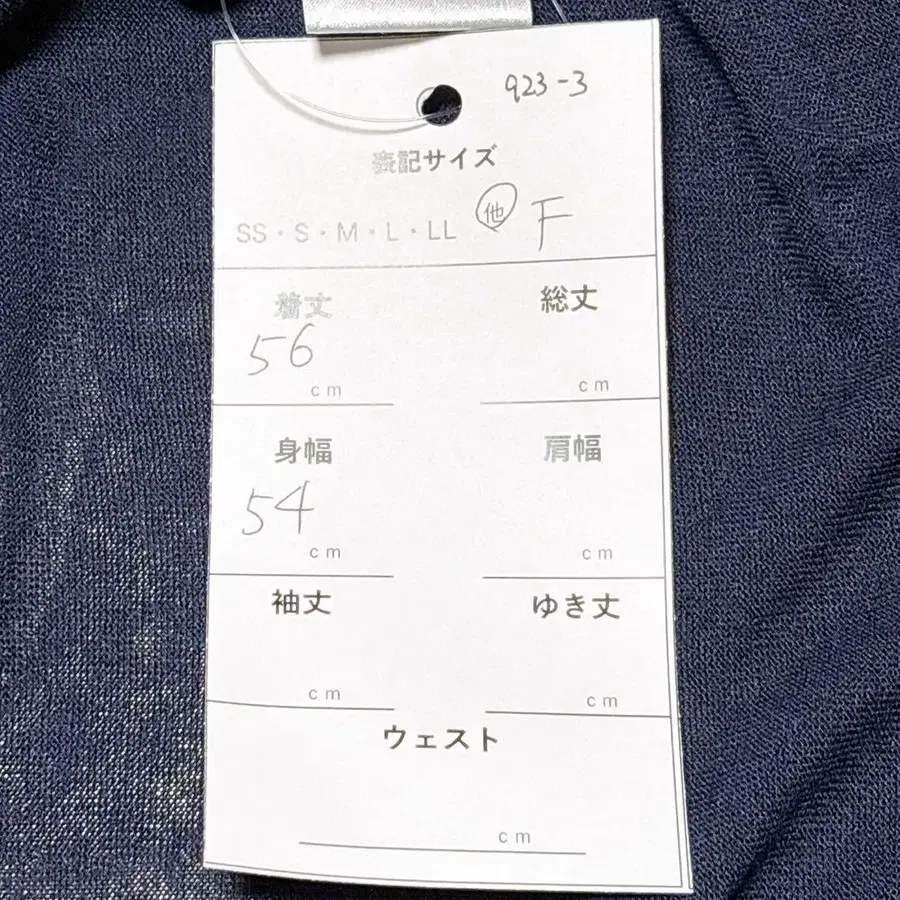 923-3
表記サイズ
SS・S・M・L・LL 他 F
着丈 総丈
56 cm cm
身幅 肩幅
54 cm cm
袖丈 ゆき丈
cm cm
ウェスト
cm